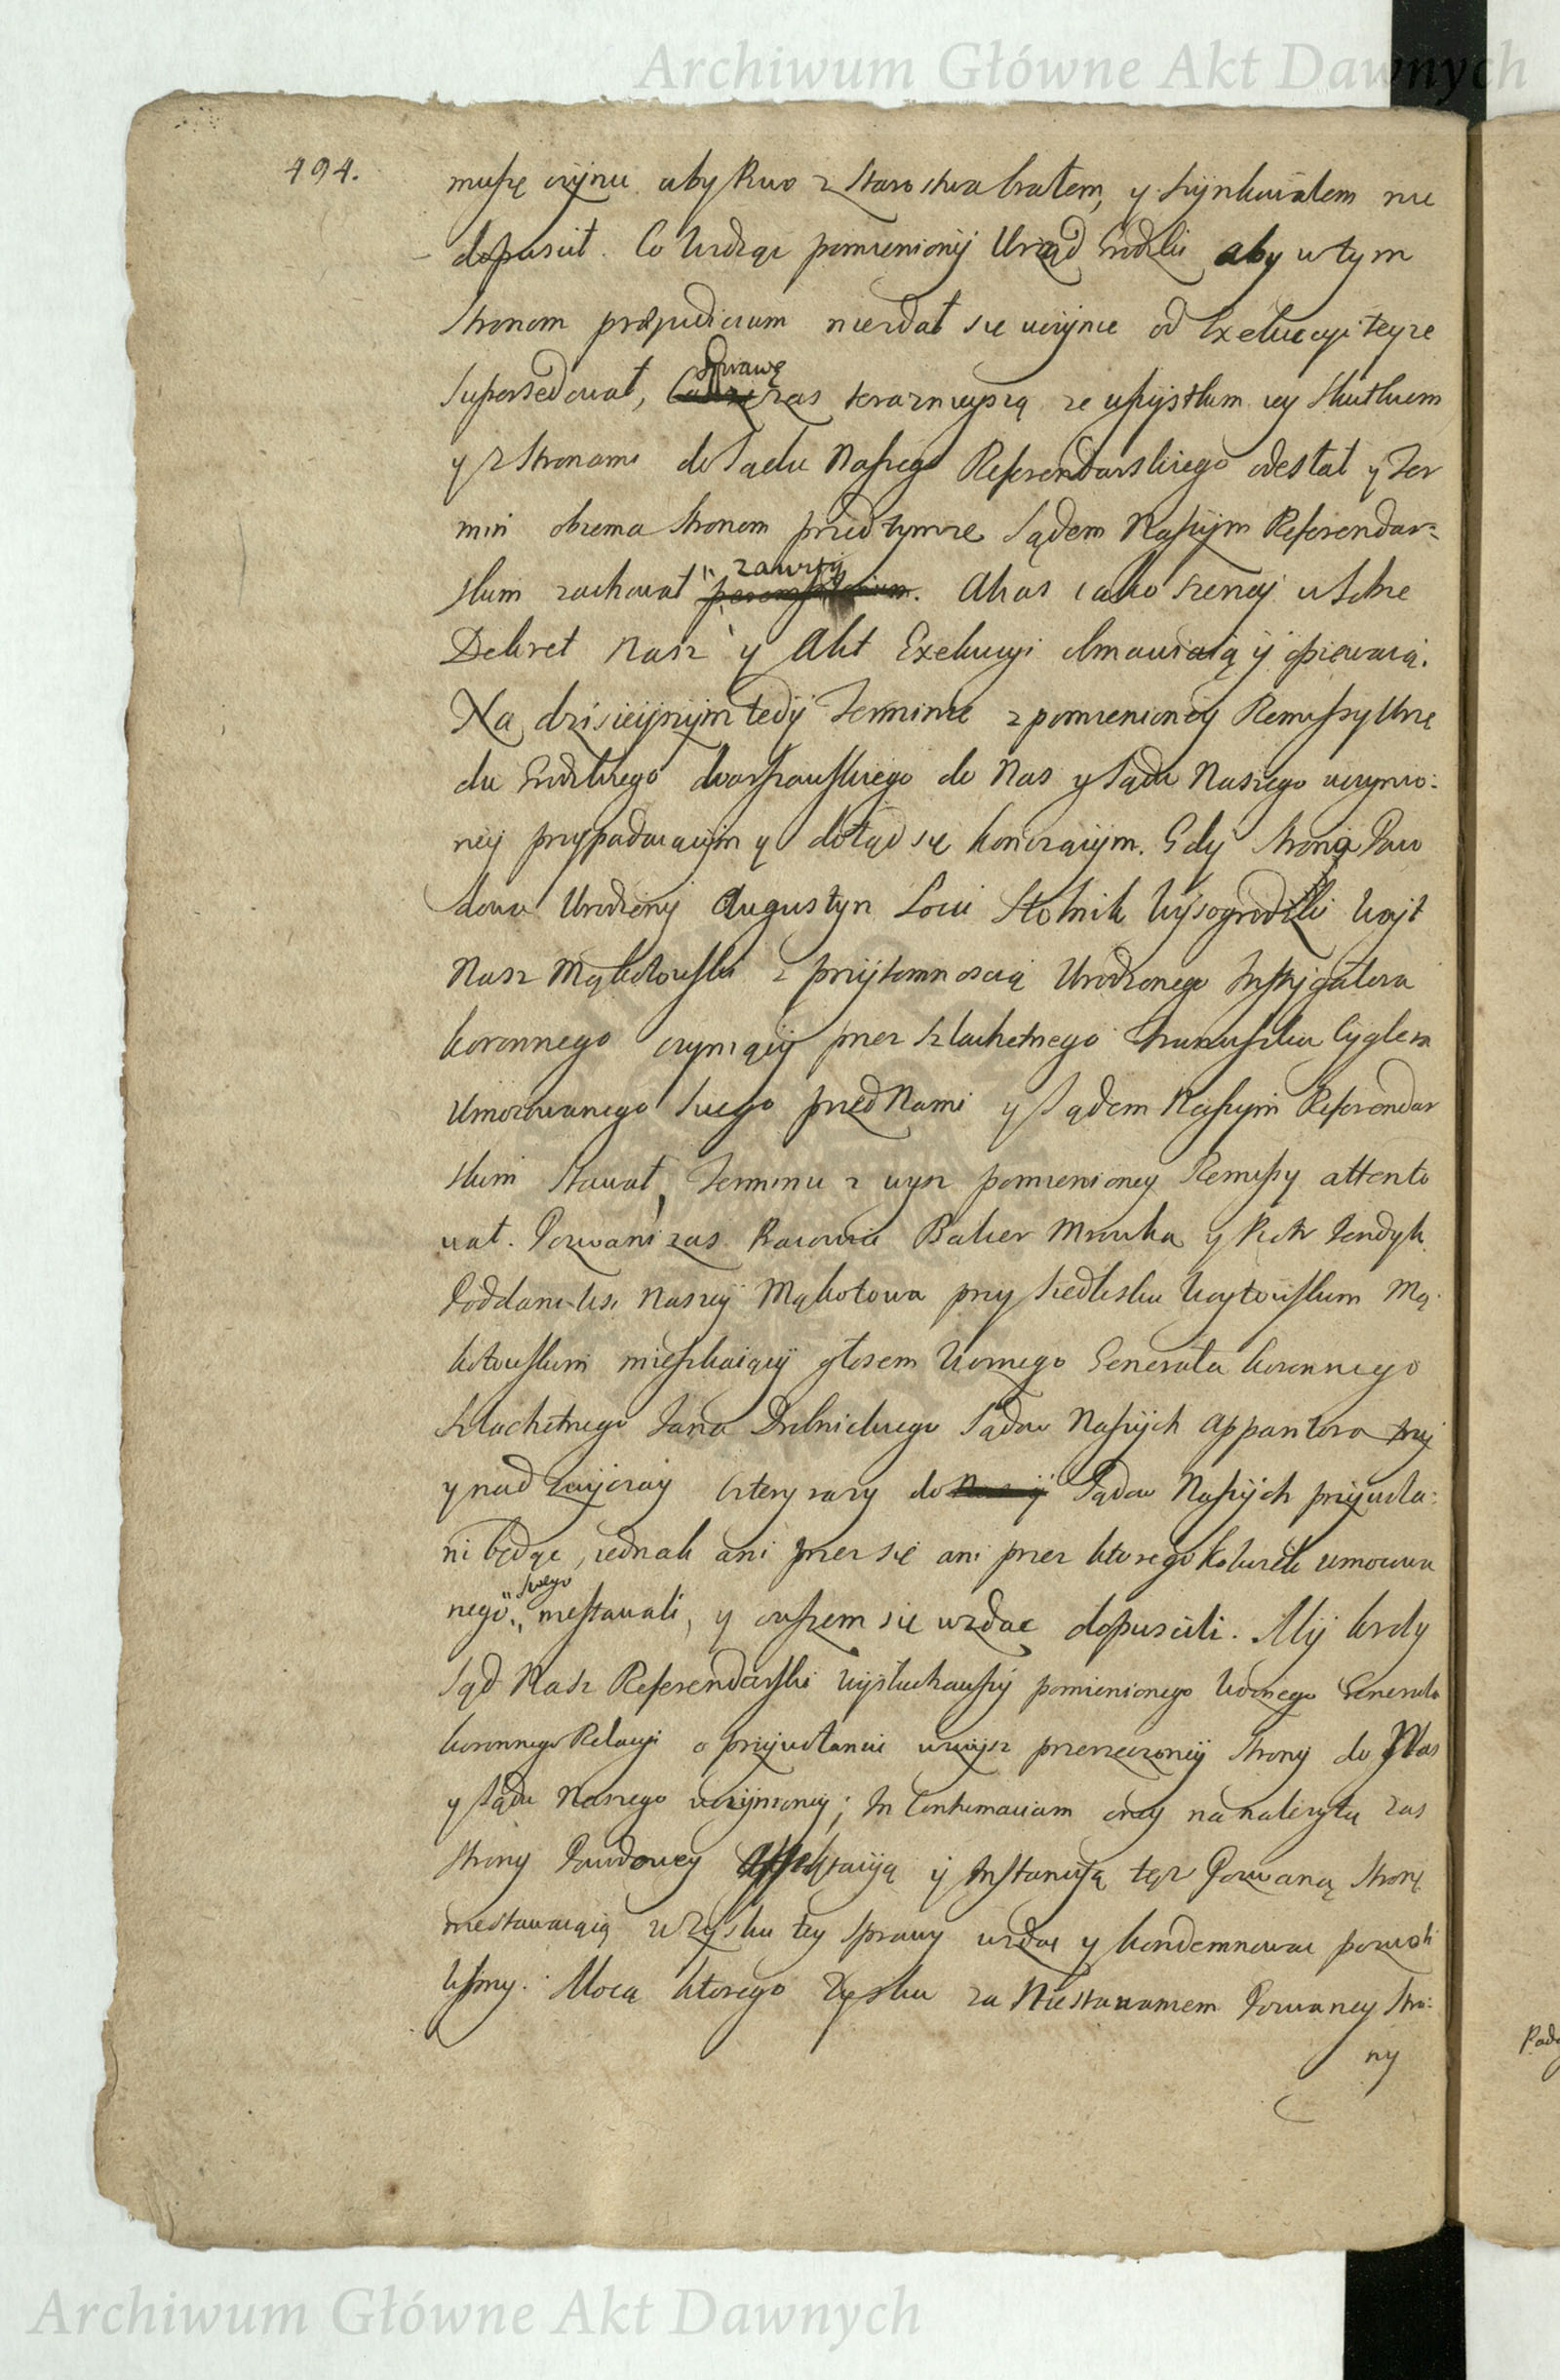 Archiwum Główne Akt Dawnych
494.
muszę czynić abym Piwo z Starostwa brałem, y szynkowałem nie
dopuścił. Co widząc pomieniony Urząd Grodzki aby w tym
stronom præjudicium niezdał się uczynić od Exekucyi teyże
supersedował, Sprawę zaś teraznieyszą ze wszystkim iey skutkiem
y z Stronami do Sądu Naszego Referendarskiego odesłał y Ter
min obiema stronom przed tymże Sądem Naszym Referendar=
skim zachował zawity. Akas iako szerzey w sobie
Dekret Nasz y Akt Exekucyi obmawiaią y opiewaią.
Na dzisieyszym tedy Terminie z pomienioney Remissy Urzę
du Grodzkiego Warszawskiego do Nas y Sądu Naszego uczynio:
ney przypadaiącym y dotąd się kończącym. Gdy strona Powo
dowa Urodzony Augustyn Loci Stolnik Wysogrodzki Woyt
Nasz Mąkotowski z przytomnością Urodzonego Instygatora
koronnego czyniący przez Szlachetnego Franciszka Cyglera
Umocowanego swego przed Nami y Sądem Naszym Referendar
skim stawał, Terminu z wysz pomienioney Remissy attento
wał. Pozwani zaś Pracowici Balcer Mrowka y Piotr Jendyk
Poddani wsi Naszey Mąkotowa przy siedlisku Woytowskim Mą
kotowskim mieszkaiący głosem Woznego Generała koronnego
Szlachetnego Jana Drelnickiego Sądow Naszych Apparitora trzy
y nad zwyczay cztery razy do Sądow Naszych przywoła:
ni będąc, iednak ani przez się ani przez ktoregokolwiek umocowa
nego swego niestawali, y owszem się wzdać dopuścili. My kroly
Sąd Nasz Referendarski wysłuchawszy pomienionego Woznego Generała
koronnego Relacyi o przywołaniu wzwysz przerzeczoney strony do Nas
y Sądu Naszego uczynioney; In Contumaciam oney na należytą zaś
strony Powodowey affektacyą y Instancyą tęż Pozwaną stronę
niestawaiącą w zysku tey sprawy wzdać y kondemnować pozwoli
liśmy. Mocą ktorego Zysku za Niestawaniem Pozwaney Stro:
ny
Archiwum Główne Akt Dawnych